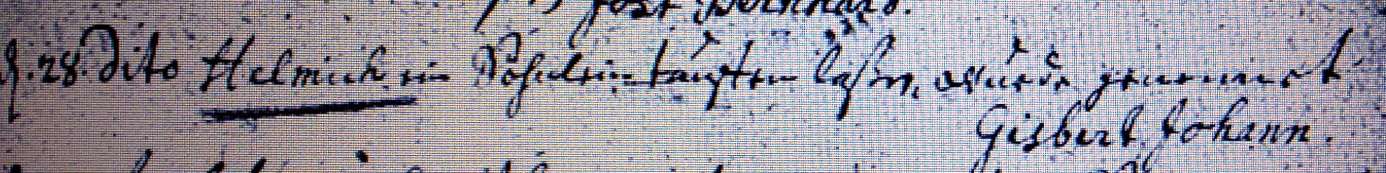 Jost Bernhard.
d. 28. dito Helmich ein Söhnlein tauffen laßen, wurde genennet
Gisbert Johann.